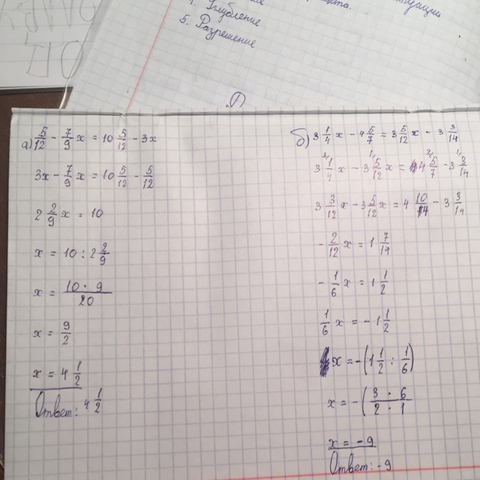 4. Углубление
5. Разрешение
а) 5/12 - 7/9 x = 10 5/12 - 3x
3x - 7/9 x = 10 5/12 - 5/12
2 2/9 x = 10
x = 10 : 2 2/9
x = 10 · 9 / 20
x = 9/2
x = 4 1/2
Ответ: 4 1/2
б) 3 1/4 x - 4 5/7 = 3 5/12 x - 3 3/14
3 1/4 x - 3 5/12 x = 4 5/7 - 3 3/14
3 3/12 x - 3 5/12 x = 4 10/14 - 3 3/14
- 2/12 x = 1 7/14
- 1/6 x = 1 1/2
1/6 x = - 1 1/2
x = - (1 1/2 : 1/6)
x = - (3 · 6 / 2 · 1
x = -9
Ответ: -9